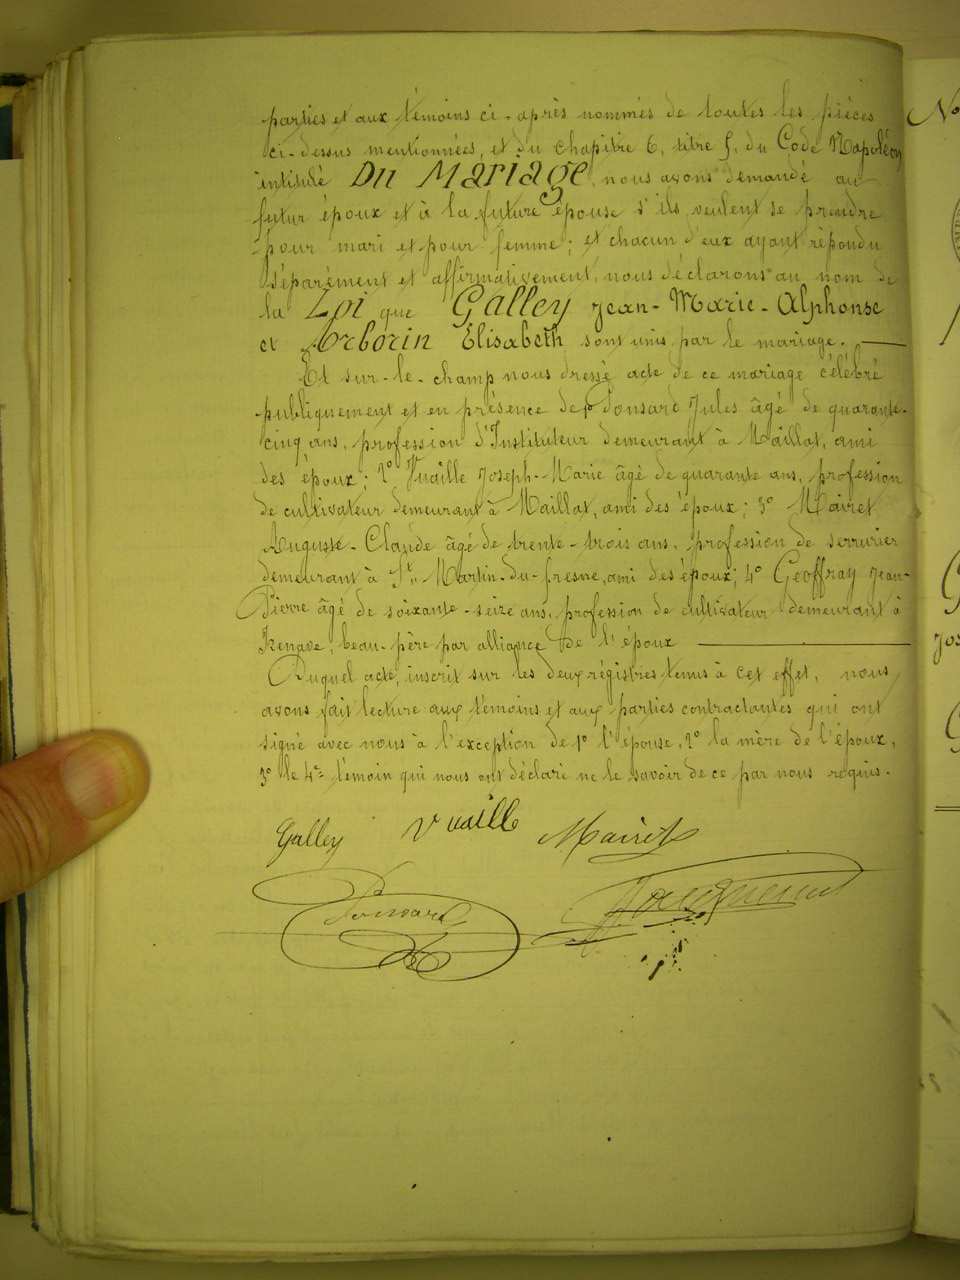 parties et aux témoins ci-après nommés de toutes les pièces
ci-dessus mentionnées, et du chapitre 6, titre 5, du Code Napoléon
intitulé DU MARIAGE, nous avons demandé au
futur époux et à la future épouse s'ils veulent se prendre
pour mari et pour femme; et chacun d'eux ayant répondu
séparément et affirmativement, nous déclarons au nom de
la Loi que Galley Jean-Marie-Alphonse
et Arborin Elisabeth sont unis par le mariage.
Et sur-le-champ nous dressé acte de ce mariage célébré
publiquement et en présence de 1° Ponsard Jules âgé de quarante-
cinq ans, profession d'Instituteur demeurant à Maillat, ami
des époux; 2° Vuaille Joseph-Marie âgé de quarante ans, profession
de cultivateur demeurant à Maillat, ami des époux; 3° Mairet
Auguste-Claude âgé de trente-trois ans, profession de serrurier
demeurant à St. Martin-du-fresne, ami des époux; 4° Geoffray Jean-
Pierre âgé de soixante-seize ans, profession de cultivateur demeurant à
Izenave, beau-père par alliance de l'époux
Duquel acte, inscrit sur les deux régistres tenus à cet effet, nous
avons fait lecture aux témoins et aux parties contractantes qui ont
signé avec nous à l'exception de 1° l'épouse, 2° la mère de l'époux,
3° le 4e témoin qui nous ont déclaré ne le savoir de ce par nous requis.
Galley Vuaille Mairet
Ponsard
N°